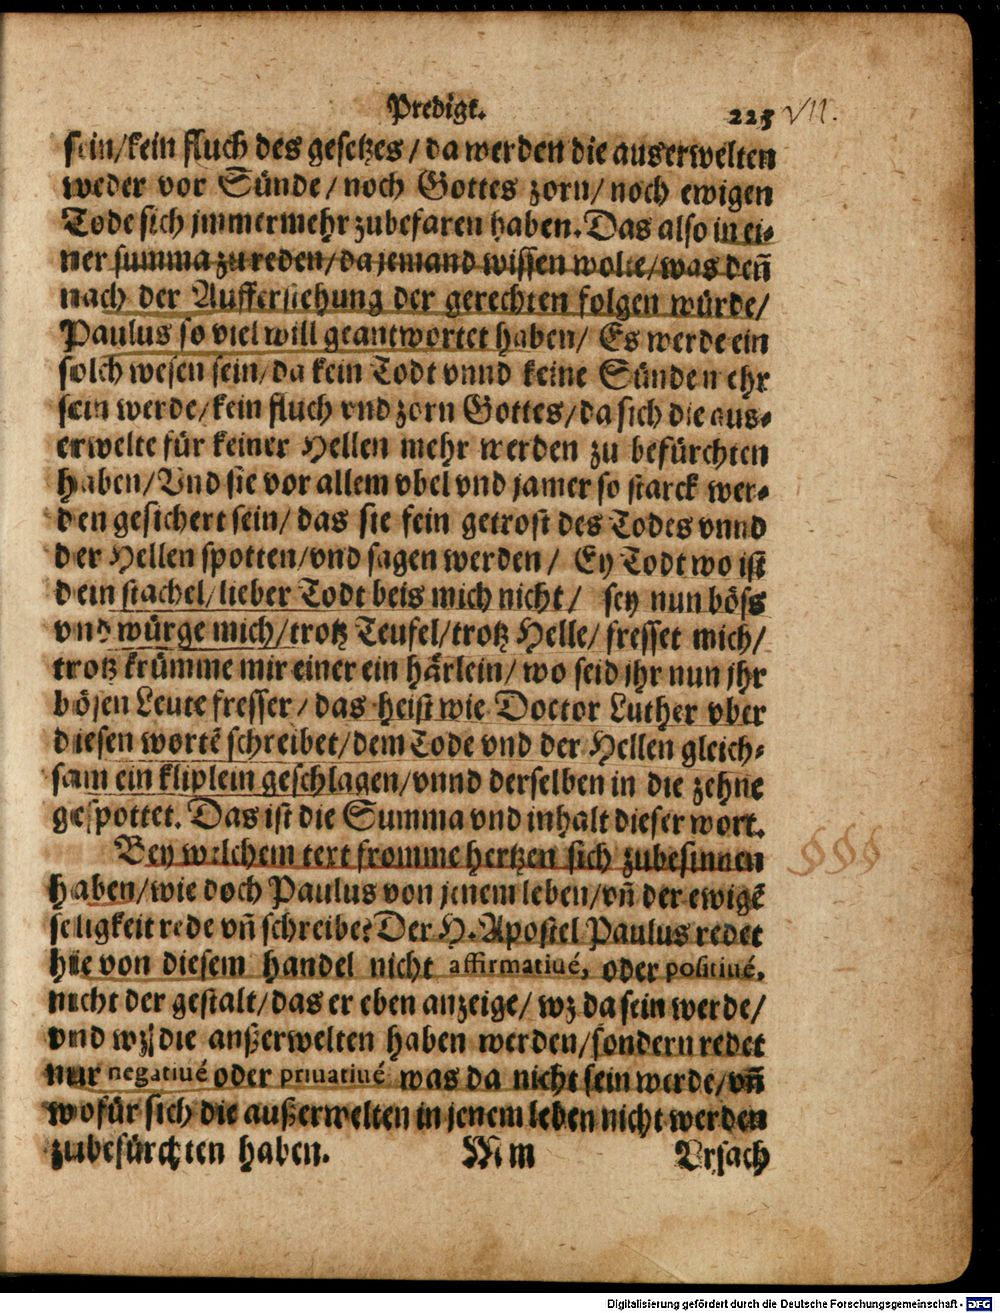 Predigt. 225 VII.
sein/kein fluch des gesetzes/da werden die auserwelten
weder vor Sünde/noch Gottes zorn/noch ewigen
Tode sich jmmermehr zubefaren haben. Das also in ei-
ner summa zu reden/da jemand wissen wolte/was deñ
nach der Aufferstehung der gerechten folgen würde/
Paulus so viel will geantwortet haben/ Es werde ein
solch wesen sein/da kein Todt vnnd keine Sünden ehr
sein werde/kein fluch vnd zorn Gottes/da sich die aus-
erwelte für keiner Hellen mehr werden zu befürchten
haben/Vnd sie vor allem vbel vnd jamer so starck wer-
den gesichert sein/ das sie fein getrost des Todes vnnd
der Hellen spotten/vnd sagen werden/ Ey Todt wo ist
dein stachel/lieber Todt beis mich nicht/ sey nun böss
vnd würge mich/trotz Teufel/trotz Helle/ fresset mich/
trotz krümme mir einer ein härlein/ wo seid jhr nun jhr
bösen Leute fresser/ das heist wie Doctor Luther vber
diesen wortē schreibet/dem Tode vnd der Hellen gleich-
sam ein kliplein geschlagen/vnnd derselben in die zehne
gespottet. Das ist die Summa vnd inhalt dieser wort.
Bey welchem text fromme hertzen sich zubesinnen §§§
haben/wie doch Paulus von jenem leben/vñ der ewigē
seligkeit rede vñ schreibe? Der H. Apostel Paulus redet
hie von diesem handel nicht affirmatiué, oder positiué,
nicht der gestalt/das er eben anzeige/ wz da sein werde/
vnd wz die außerwelten haben werden/sondern redet
nur negatiué oder priuatiué was da nicht sein werde/vñ
wofür sich die außerwelten in jenem leben nicht werden
zubefürchten haben. Mm Vrsach
Digitalisierung gefördert durch die Deutsche Forschungsgemeinschaft - DFG